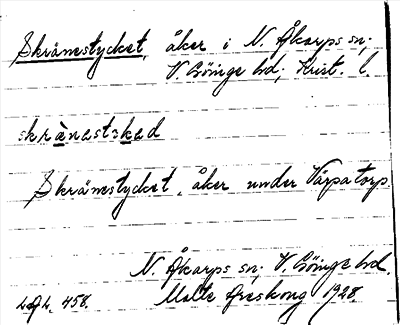 Skrånestycket, åker i N. Åkarps sn;
V. Göinge hd, Krist. l.
skrànestsked
Skrånestycket, åker under Värpatorp
N. Åkarps sn; V. Göinge hd.
458. Malte Areskoug 1928